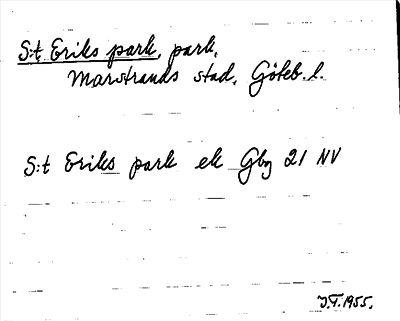 S:t Eriks park, park,
Marstrands stad, Göteb. l.
S:t Eriks park ek Gbg 21 NV
J.T. 1955.